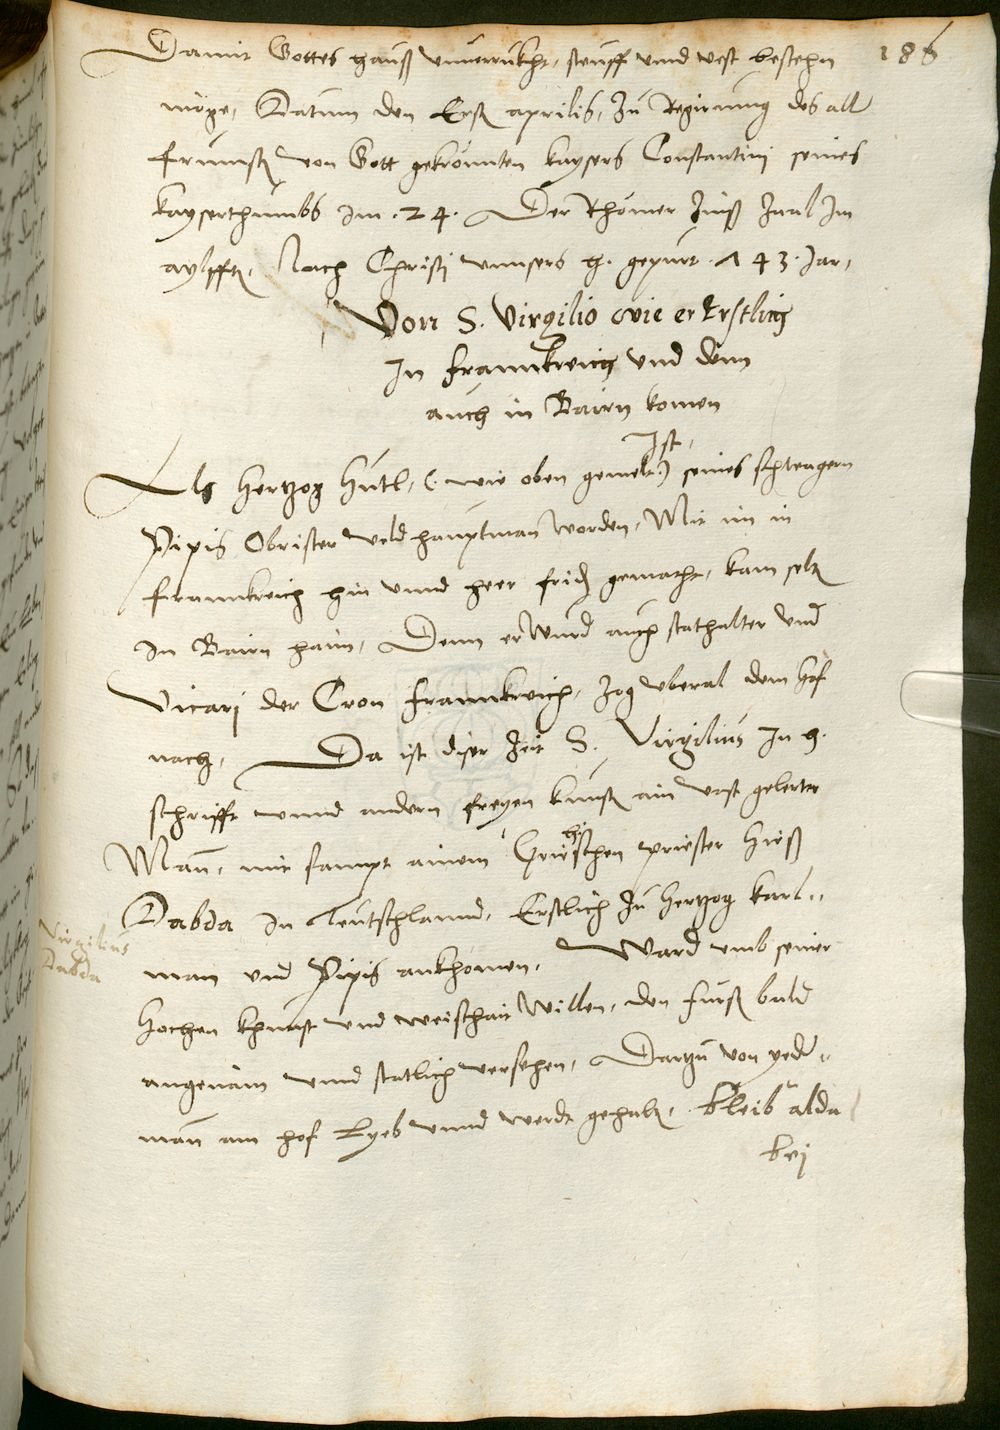 186
Damit Gottes hauß vnuerrukht, steiff vnnd vest bestehn
möge, Datum den Erst aprilis, Zu Regirung des all
frumst von Gott gekrönnten kaysers Constantini seines
kayserthumbs im .24. Der Rhömer Zinß Zaal Im
aylfft, Nach Christi vnnsers h. gepurt .743. Jar,
Von S. Virgilio wie er Erstlich
In Frannkreich vnd denn
auch in Bairn komen
Ist,
Als Hertzog Hütl, (: wie oben gemelt :) seines schwagern
Pipis Obrister veld hauptman worden, Mit im in
Frannkreich hin vnnd heer frid gemacht, kam selt
In Bairn haim, Denn er Wurd auch stathalter vnd
Vicari der Cron Frannkreich, Zog vberal dem hof
nach, Da ist diser Zeit S. Virgilius In h.
schrifft vnnd andern freyen kunst ain vast gelerter
Mañ, mit sampt ainem Griechischen priester hieß
Dabda In Teutschlannd, Erstlich Zu Hertzog karl-
man vnd Pipis ankhomen, Ward vmb seiner
Hochen khunst vnd weishait Willen, den Fürst bald
angenäm vnnd statlich versehen, Dartzu von yeder-
mañ am hof Lyeb vnnd werdt gehalt, bleib alda
bei
Virgilius
Dabda